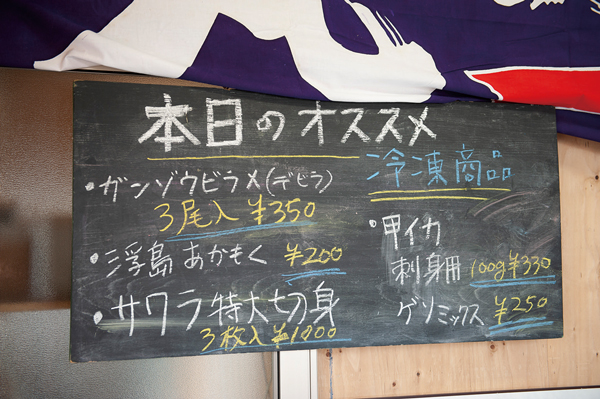 本日のオススメ
・ガンゾウビラメ(デビラ)
3尾入 ¥350
・浮島あかもく ¥200
・サワラ特大切身
3枚入 ¥1000
冷凍商品
・甲イカ
刺身用 100g ¥330
ゲソミックス ¥250